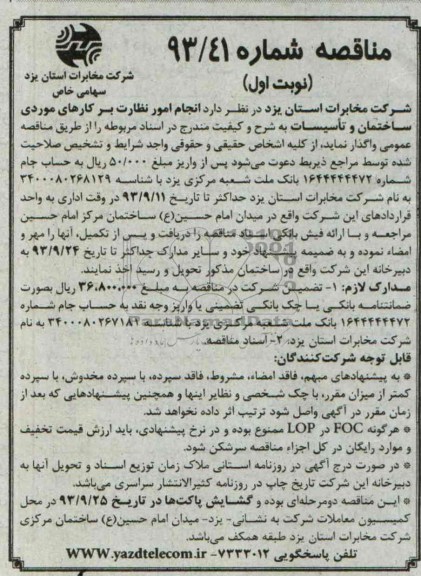 مناقصه شماره ۹۳/٤۱
(نوبت اول)
شرکت مخابرات استان یزد
سهامی خاص
شرکت مخابرات استان یزد در نظر دارد انجام امور نظارت بر کارهای موردی
ساختمان و تأسیسات به شرح و کیفیت مندرج در اسناد مربوطه را از طریق مناقصه
عمومی واگذار نماید، از کلیه اشخاص حقیقی و حقوقی واجد شرایط و تشخیص صلاحیت
شده توسط مراجع ذیربط دعوت می‌شود پس از واریز مبلغ ۵۰/۰۰۰ ریال به حساب جام
شماره ۱۶۴۴۴۴۴۴۷۲ بانک ملت شعبه مرکزی یزد با شناسه ۳۴۰۰۰۸۰۲۶۸۱۲۹
به نام شرکت مخابرات استان یزد حداکثر تا تاریخ ۹۳/۹/۱۱ در وقت اداری به واحد
قراردادهای این شرکت واقع در میدان امام حسین(ع) ساختمان مرکز امام حسین
مراجعه و با ارائه فیش بانکی اسناد مناقصه را دریافت و پس از تکمیل، آنها را مهر و
امضاء نموده و به ضمیمه پیشنهاد خود و سایر مدارک حداکثر تا تاریخ ۹۳/۹/۲۴ به
دبیرخانه این شرکت واقع در ساختمان مذکور تحویل و رسید اخذ نمایند.
مدارک لازم: ۱- تضمین شرکت در مناقصه به مبلغ ۳۶.۸۰۰.۰۰۰ ریال بصورت
ضمانتنامه بانکی یا چک بانکی تضمینی یا واریز وجه نقد به حساب جام شماره
۱۶۴۴۴۴۴۴۷۲ بانک ملت شعبه مرکزی یزد با شناسه ۳۴۰۰۰۸۰۲۶۷۱۸۲ به نام
شرکت مخابرات استان یزد، ۲- اسناد مناقصه.
قابل توجه شرکت‌کنندگان:
* به پیشنهادهای مبهم، فاقد امضاء، مشروط، فاقد سپرده، با سپرده مخدوش، با سپرده
کمتر از میزان مقرر، با چک شخصی و نظایر اینها و همچنین پیشنهادهایی که بعد از
زمان مقرر در آگهی واصل شود ترتیب اثر داده نخواهد شد.
* هرگونه FOC در LOP ممنوع بوده و در نرخ پیشنهادی، باید ارزش قیمت تخفیف
و موارد رایگان در کل اجزاء مناقصه سرشکن شود.
* در صورت درج آگهی در روزنامه استانی ملاک زمان توزیع اسناد و تحویل آنها به
دبیرخانه این شرکت تاریخ چاپ در روزنامه کثیرالانتشار سراسری می‌باشد.
* این مناقصه دومرحله‌ای بوده و گشایش پاکت‌ها در تاریخ ۹۳/۹/۲۵ در محل
کمیسیون معاملات شرکت به نشانی- یزد- میدان امام حسین(ع) ساختمان مرکزی
شرکت مخابرات استان یزد طبقه همکف می‌باشد.
تلفن پاسخگویی ۷۲۳۳۰۱۲- WWW.yazdtelecom.ir